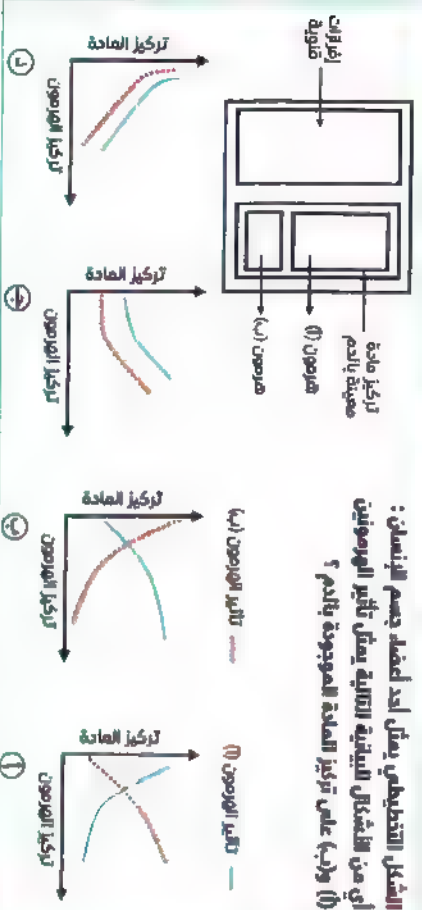 الشكل التخطيطي يمثل أحد أعضاء جسم الإنسان :
أي من الأشكال البيانية التالية يمثل تأثير الهرمونين
(أ) و(ب) على تركيز المادة الموجودة بالدم ؟
إفرازات
قنوية
تركيز مادة
معينة بالدم
هرمون (أ)
هرمون (ب)
تأثير الهرمون (أ)
تأثير الهرمون (ب)
تركيز المادة
تركيز الهرمون
أ
تركيز المادة
تركيز الهرمون
ب
تركيز المادة
تركيز الهرمون
ج
تركيز المادة
تركيز الهرمون
د